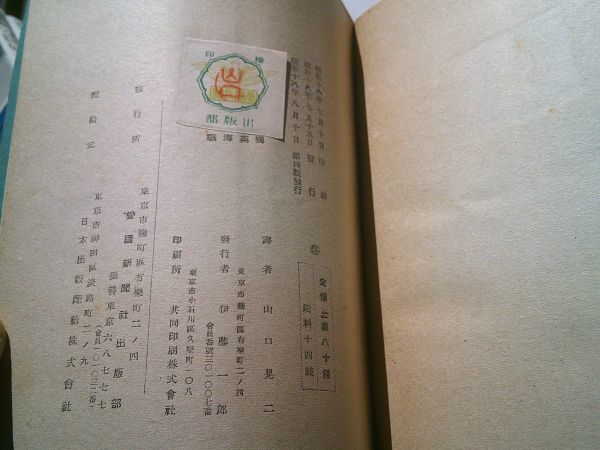 昭和十八年七月十日 印刷
昭和十八年七月十五日 發行
昭和十八年八月十日 第四版發行
檢印
出版部
獨英海戰
定價 圓八十錢
送料十四錢
譯者 山口晃二
東京市麴町區有樂町二ノ四
發行者 伊藤一郎
會員番號三〇一〇〇七番
東京市小石川區久堅町一〇八
印刷所 共同印刷株式會社
東京市麴町區有樂町二ノ四
發行所 愛國新聞社出版部
振替東京六八七七七
(會員一〇一〇三二番)
東京市神田區淡路町二ノ九
配給元 日本出版配給株式會社